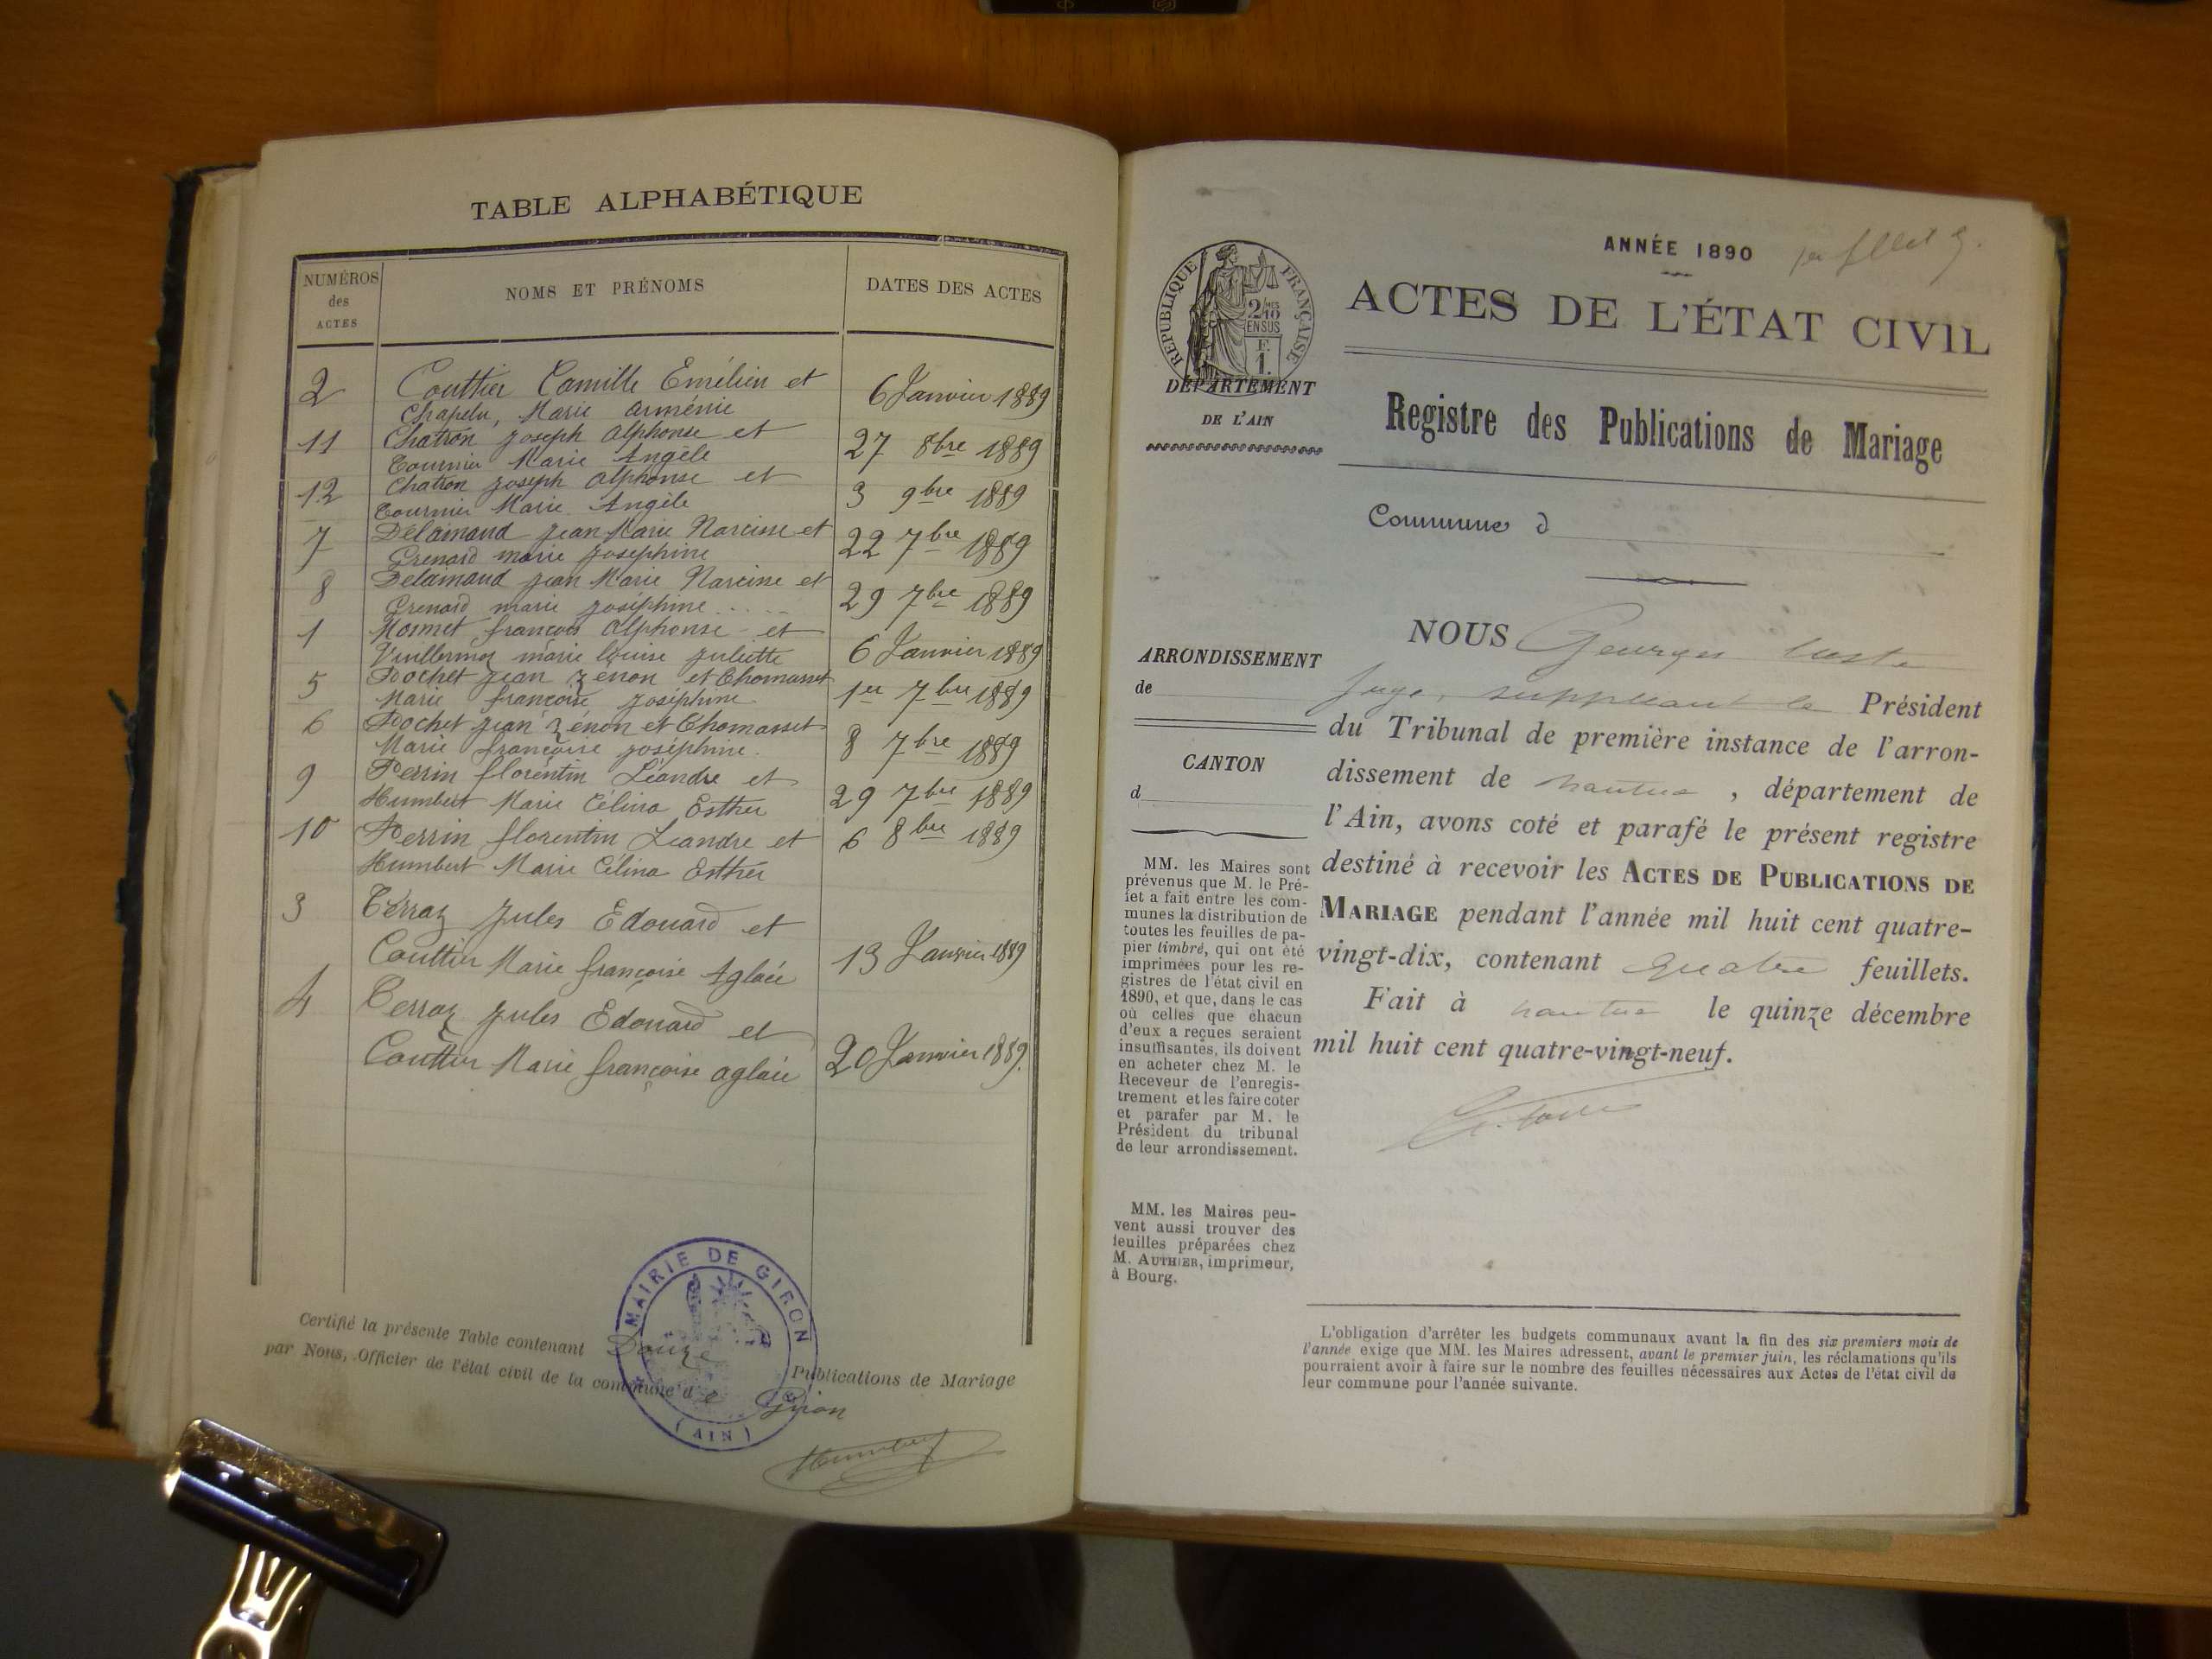 TABLE ALPHABÉTIQUE
NUMÉROS
des
ACTES
NOMS ET PRÉNOMS
DATES DES ACTES
2 Couttier Camille Emélien et 6 Janvier 1889
Chapelu, Marie Arménie
11 Chatron Joseph Alphonse et 27 8bre 1889
Tournier Marie Angèle
12 Chatron Joseph Alphonse et 3 9bre 1889
Tournier Marie Angèle
7 Délaimaud Jean Marie Narcisse et 22 7bre 1889
Grenard marie Joséphine
8 Delaimaud Jean Marie Narcisse et 29 7bre 1889
Grenard marie Joséphine .....
1 Mermet françois Alphonse et 6 Janvier 1889
Vuillermoz marie louise juliette
5 Pochet Jean Zénon et Chomasset 1er 7bre 1889
Marie françoise Joséphine
6 Pochet Jean Zénon et Chomasset 8 7bre 1889
Marie françoise Joséphine.
9 Perrin florentin Léandre et 29 7bre 1889
Humbert Marie Célina Esther
10 Perrin florentin Léandre et 6 8bre 1889
Humbert Marie Célina Esther
3 Terraz Jules Edouard et
Couttier Marie françoise Aglaée 13 Janvier 1889
4 Terraz Jules Edouard et
Couttier Marie françoise aglaée 20 Janvier 1889.
MAIRIE DE GIRON
(AIN)
Certifié la présente Table contenant Douze Publications de Mariage
par Nous, Officier de l'état civil de la commune de Giron
ANNÉE 1890
RÉPUBLIQUE FRANÇAISE
2/10 EN SUS
F. 1.
ACTES DE L'ÉTAT CIVIL
DÉPARTEMENT
DE L'AIN
Registre des Publications de Mariage
Commune d
ARRONDISSEMENT
de
CANTON
d
MM. les Maires sont
prévenus que M. le Pré-
fet a fait entre les com-
munes la distribution de
toutes les feuilles de pa-
pier timbré, qui ont été
imprimées pour les re-
gistres de l'état civil en
1890, et que, dans le cas
où celles que chacun
d'eux a reçues seraient
insuffisantes, ils doivent
en acheter chez M. le
Receveur de l'enregis-
trement et les faire coter
et parafer par M. le
Président du tribunal
de leur arrondissement.
MM. les Maires peu-
vent aussi trouver des
feuilles préparées chez
M. AUTHIER, imprimeur,
à Bourg.
NOUS Georges
Juge, suppléant le Président
du Tribunal de première instance de l'arron-
dissement de nantua, département de
l'Ain, avons coté et parafé le présent registre
destiné à recevoir les ACTES DE PUBLICATIONS DE
MARIAGE pendant l'année mil huit cent quatre-
vingt-dix, contenant quatre feuillets.
Fait à nantua le quinze décembre
mil huit cent quatre-vingt-neuf.
L'obligation d'arrêter les budgets communaux avant la fin des six premiers mois de
l'année exige que MM. les Maires adressent, avant le premier juin, les réclamations qu'ils
pourraient avoir à faire sur le nombre des feuilles nécessaires aux Actes de l'état civil de
leur commune pour l'année suivante.